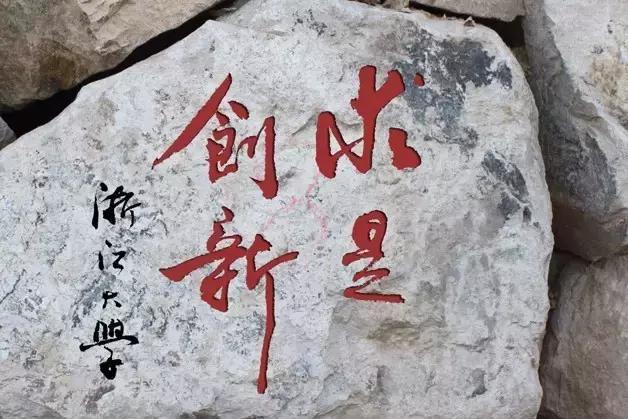 求是
创新
浙江大學